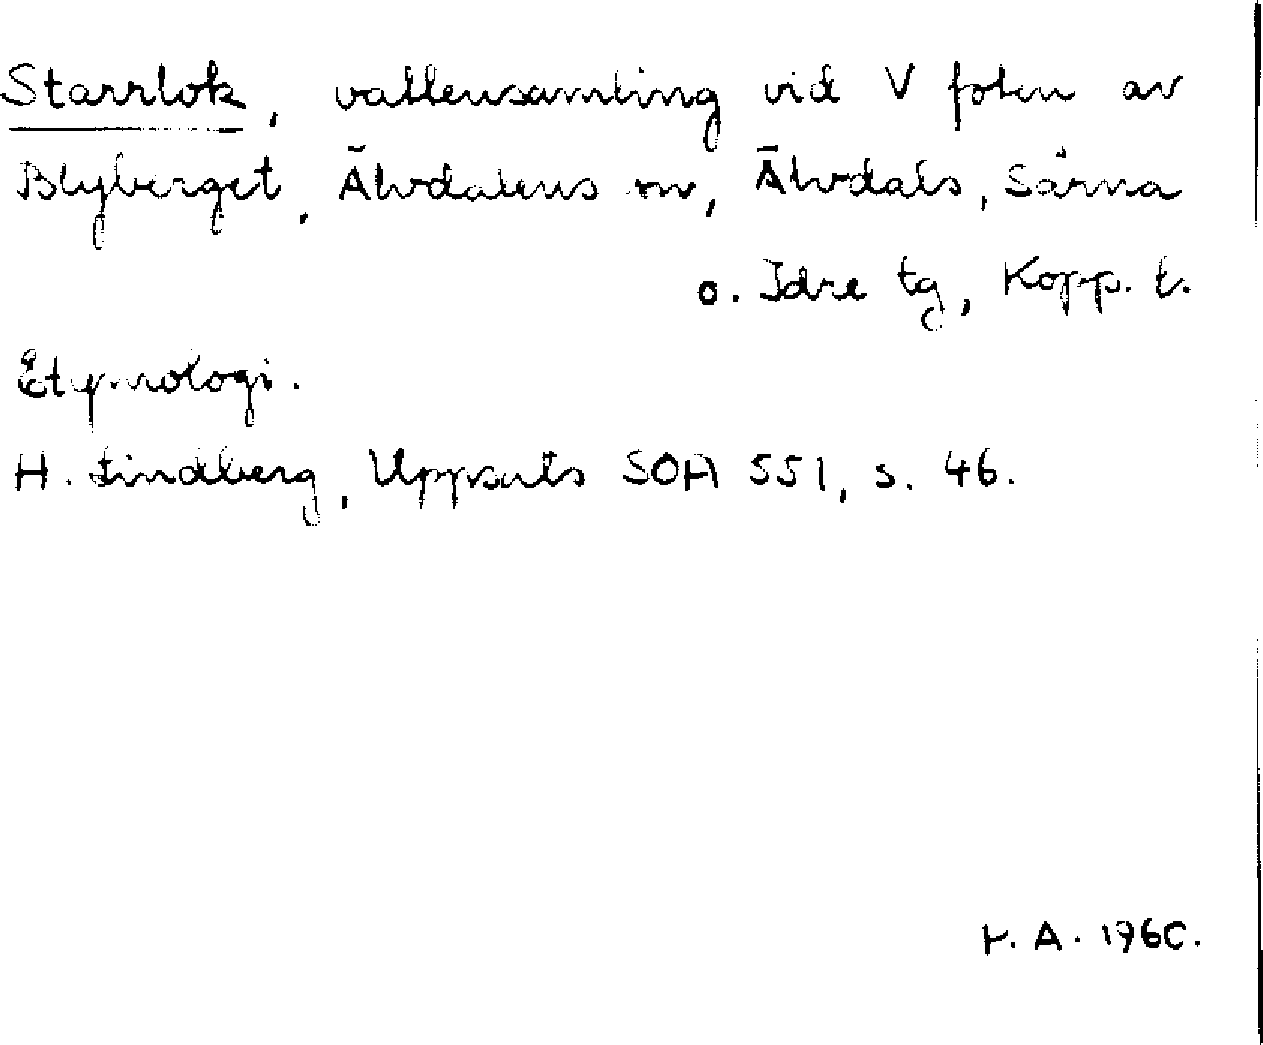 Starrlok, vattensamling vid V foten av
Blyberget, Älvdalens sn, Älvdals, Särna
o. Idre tg, Kopp. l.
Etymologi.
H. Lindberg, Uppsats SOA 551, s. 46.
A. 1960.